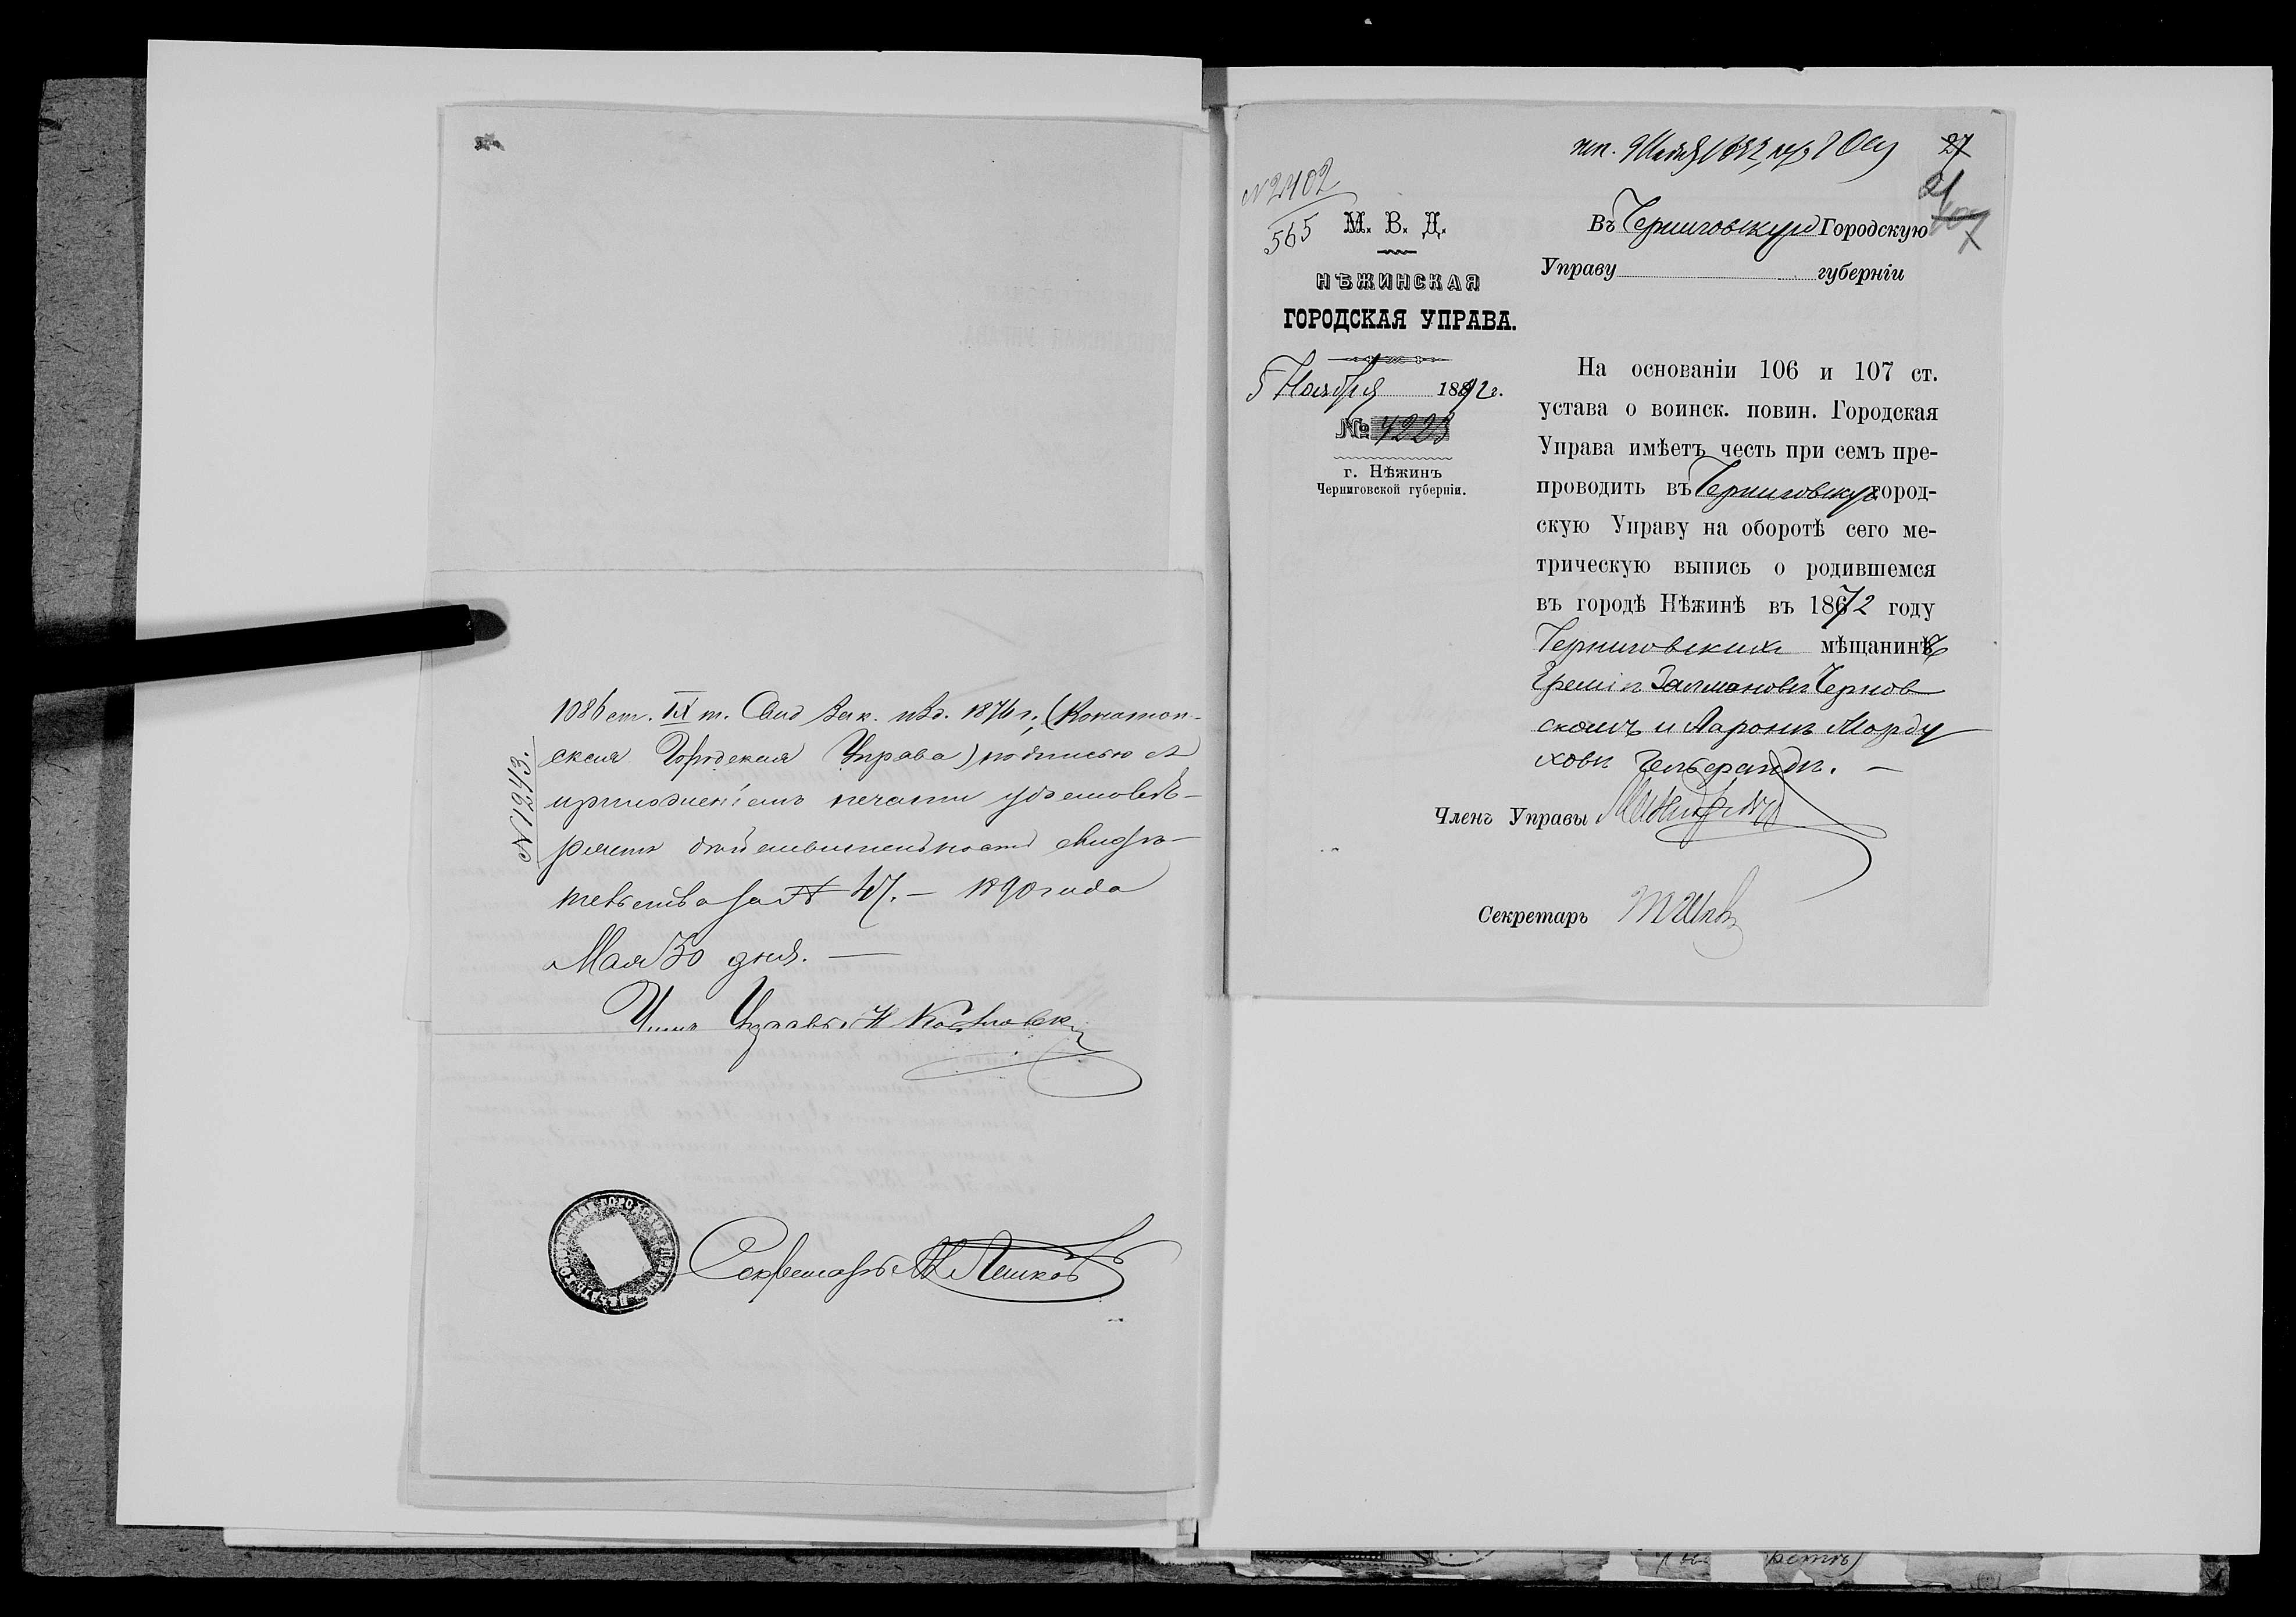 1086 ст. IX т. Свод Зак. изд. 1876 г. (Конатоп-
ская Городская Управа) подписью и
приложеніемъ печати удостовѣ-
ряетъ дѣйствительность свидѣ-
тельства за № 47. — 1890 года
Мая 30 дня. —
Членъ Управы Н Козловскій
Секретарь Пешковъ
№ 1243.
27
21
№ 2402
565
М. В. Д.
НѢЖИНСКАЯ
ГОРОДСКАЯ УПРАВА.
5 Ноября 1892 г.
№ 4223
г. Нѣжинъ
Черниговской губерніи.
Въ Черниговскую Городскую
Управу губерніи
На основаніи 106 и 107 ст.
устава о воинск. повин. Городская
Управа имѣетъ честь при семъ пре-
проводить въ Черниговскую город-
скую Управу на оборотѣ сего ме-
трическую выпись о родившемся
въ городѣ Нѣжинѣ въ 1872 году
Черниговскихъ мѣщанинѣ
Залмановѣ Чернов
скомъ и Аронѣ Морду
ховѣ
Членъ Управы
Секретарь